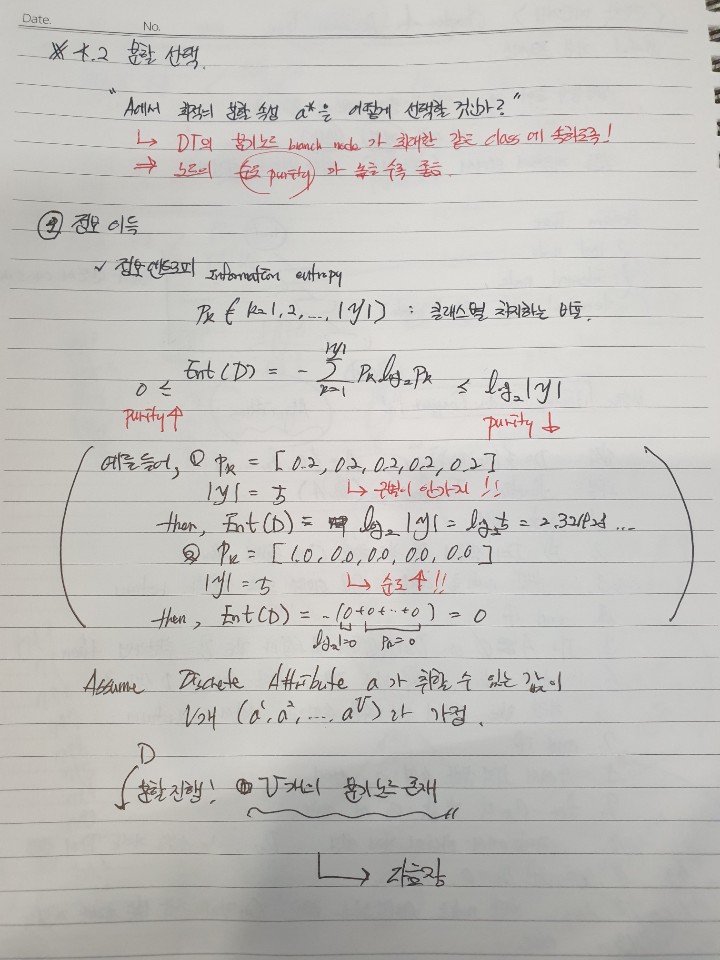 Date.
No.
※ 4.2 분할 선택.
"A에서 최적의 분할 속성 a*을 어떻게 선택할 것인가?"
↳ DT의 분기노드 branch node 가 최대한 같은 class에 속하도록!
⇒ 노드의 순도 purity 가 높을 수록 좋음.
① 정보 이득
✓ 정보엔트로피 Information entropy
Pk { k=1, 2, ..., |y| } : 클래스별 차지하는 비율.
0 ≤ Ent(D) = - Σ_{k=1}^{|y|} Pk log₂Pk ≤ log₂|y|
purity↑ purity↓
예를들어, ① Pk = [0.2, 0.2, 0.2, 0.2, 0.2]
|y| = 5 ↳ 구별이 안가지!!
then, Ent(D) = log₂|y| = log₂5 = 2.321928...
② Pk = [1.0, 0.0, 0.0, 0.0, 0.0]
|y| = 5 ↳ 순도↑!!
then, Ent(D) = -(0+0+...+0) = 0
log₂1=0 Pk=0
Assume Discrete Attribute a 가 취할 수 있는 값이
V개 (a¹, a², ..., aⱽ) 라 가정.
D
분할 진행! V개의 분기노드 존재
↳ 다음장